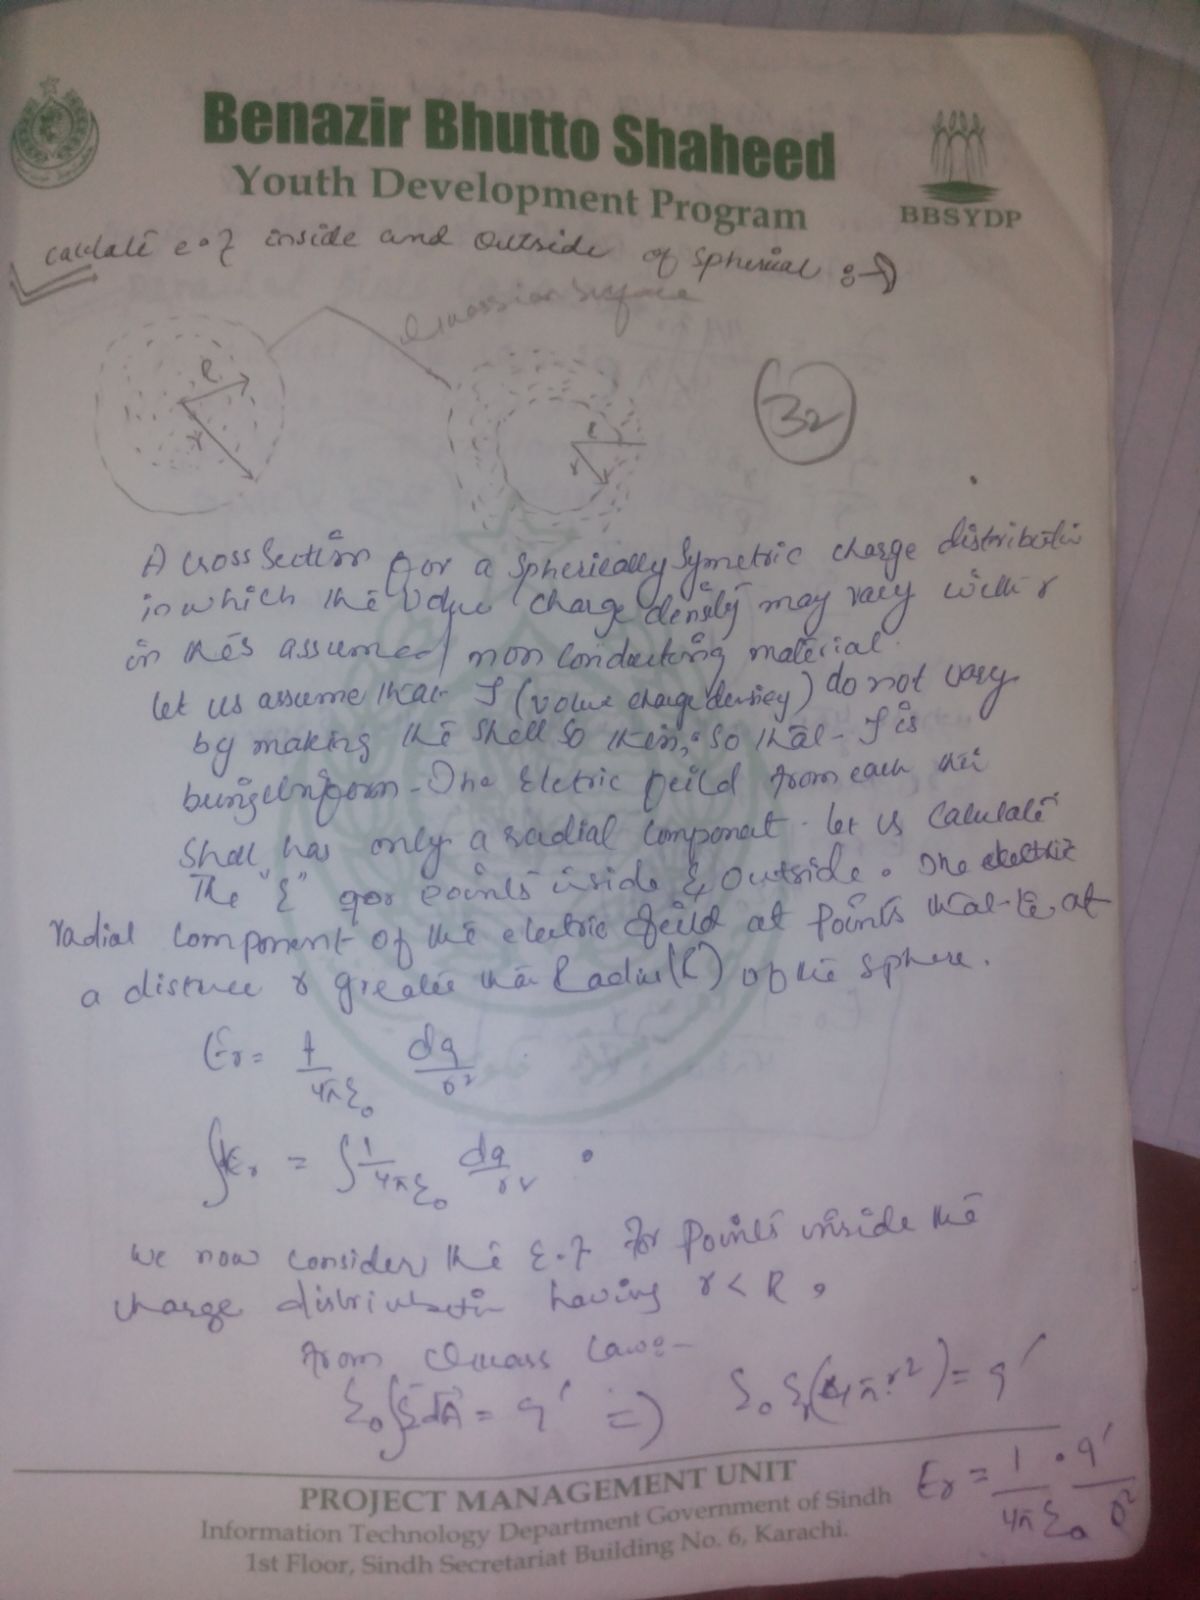 Benazir Bhutto Shaheed
Youth Development Program
BBSYDP
calculate e.f inside and outside of spherical :-
Gaussian Surface
R
r
r
r
32
A cross Section for a spherically Symetric charge distribution
in which the volue charge density may vary with r
in this assumed non conducting material.
let us assume that ρ (volue charge density) do not vary
by making the shell so thin, so that ρ is
being uniform. The Eletric feild from each thin
Shell has only a radial componat. let us Calculate
The "E" for points inside & outside. The electric
radial component of the electric feild at points that lie at
a distance r greater than Radius(R) of the sphere.
Er = 1/4πε₀ dq/r²
∫Er = ∫1/4πε₀ dq/r²
we now consider the E.F for points inside the
charge distribution having r < R.
From Guass Law:-
ε₀∫EdA = q' => ε₀ Er(4πr²) = q'
Er = 1/4πε₀ . q'/r²
PROJECT MANAGEMENT UNIT
Information Technology Department Government of Sindh
1st Floor, Sindh Secretariat Building No. 6, Karachi.